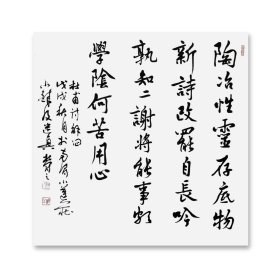 陶冶性靈存底物
新詩改罷自長吟
孰知二謝將能事頗
學陰何苦用心
杜甫詩解悶
戊戌秋月於